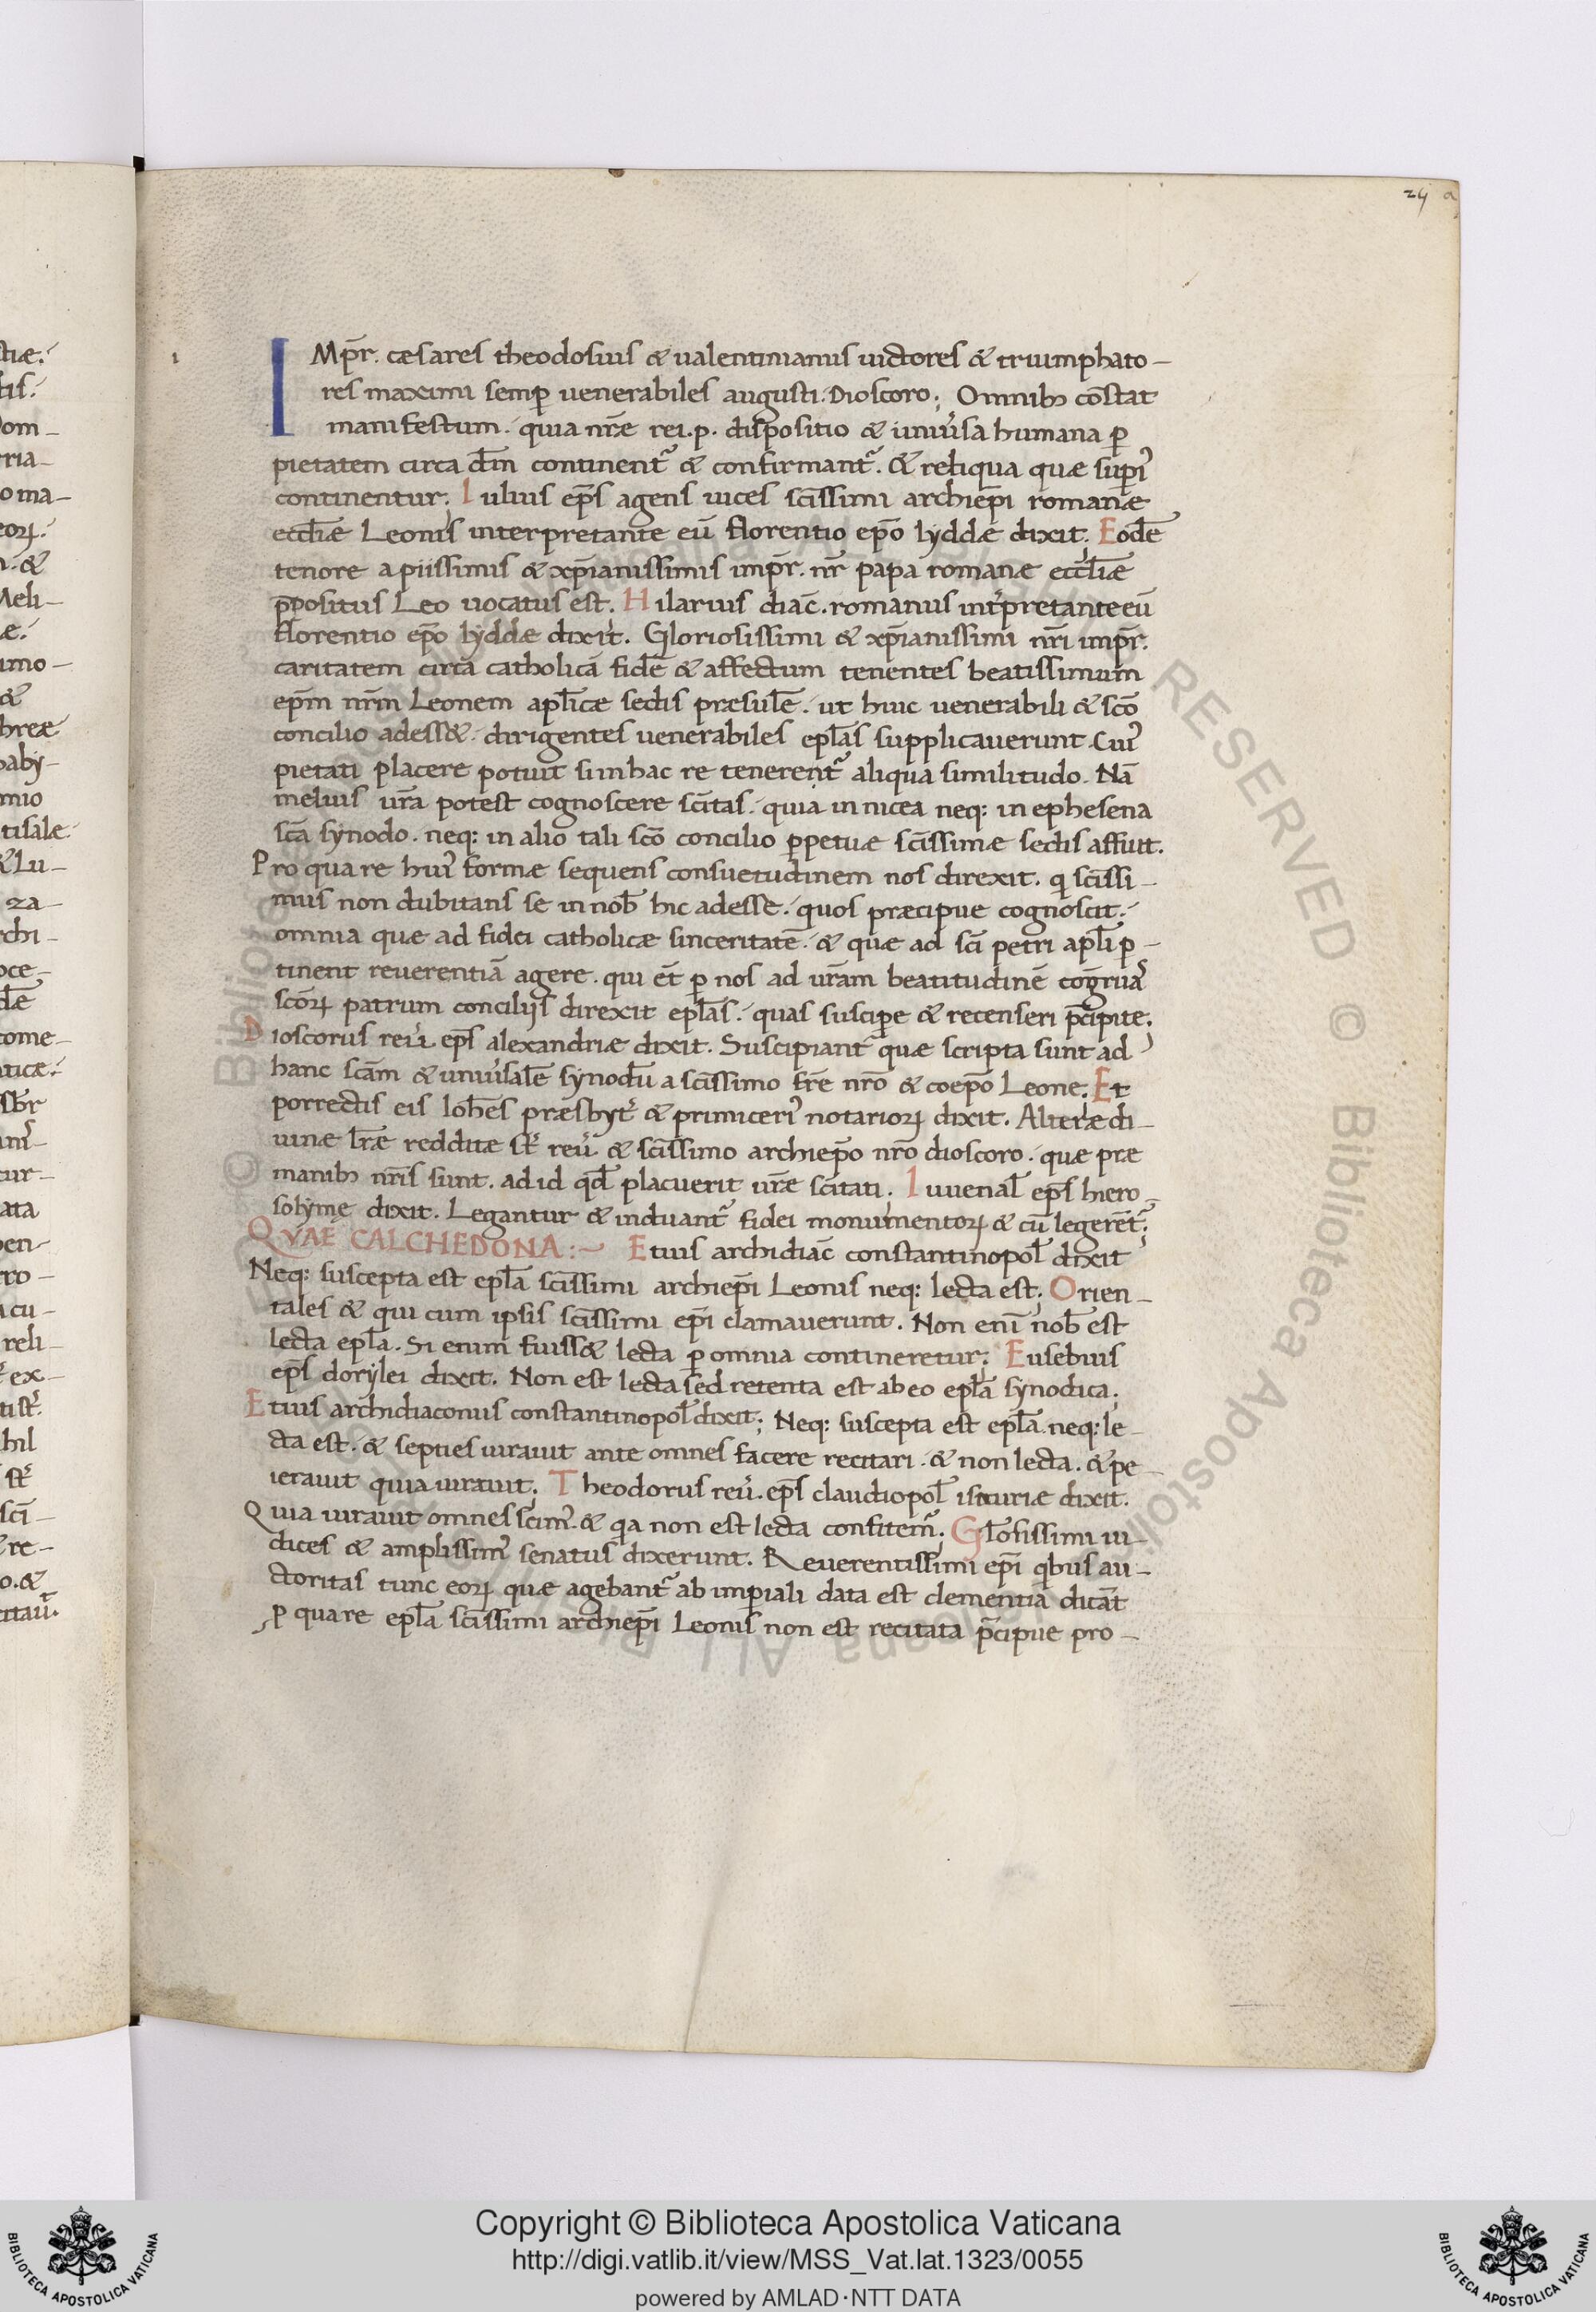 24 a
IMp̄r. cæsares theodosius & ualentinianus uictores & triumphato-
res maximi semp̱ uenerabiles augusti. Dioscoro; Omnib; cōstat
manifestum. quia nr̄e rei. p. dispositio & uniu'sa humana p̱
pietatem circa dm̄ continent᷑ & confirmant᷑. & reliqua quæ sup̱i᷑
continentur; Iulius ep̄s agens uices scīssimi archiep̄i romanæ
eccl̄iæ Leonis interpretante eū florentio ep̄o lyddæ dixit; Eodē
tenore a piissimis & xp̄ianissimis imp̄r. nr̄ papa romanæ eccl̄iæ
p̄positus Leo uocatus est. Hilarius diac̄. romanus int᷑pretante eū
florentio ep̄o lyddæ dixit. Gloriosissimi & xp̄ianissimi nr̄i imp̄r.
caritatem circa catholicā fidē & affectum tenentes beatissimum
ep̄m nr̄m Leonem apl̄icæ sedis præsulē. ut huic uenerabili & scō
concilio adess&. dirigentes uenerabiles epl̄as supplicauerunt. Cui᷑
pietati placere potuit si in hac re tenerent᷑ aliqua similitudo. Nā
melius ur̄a potest cognoscere scītas. quia in nicea neq: in ephesena
scā synodo. neq: in alio tali scō concilio p̱petuæ scīssimæ sedis affuit.
Pro qua re hui᷑ formæ sequens consuetudinem nos direxit. q scīssi-
mus non dubitans se in nob̄ hic adesse. quos præcipue cognoscit;
omnia quæ ad fidei catholicæ sinceritatē. & quæ ad scī petri apl̄i p̱-
tinent reuerentiā agere. qui et̄ p̱ nos ad ur̄am beatitudinē congrua᷑
scōrꝝ patrum conciliis direxit epl̄as. quas suscip̱e & recenseri p̄cipite.
Dioscorus reu᷑. ep̄s alexandriæ dixit. Suscipiant᷑ quæ scripta sunt ad
hanc scām & uniu'salē synodū a scīssimo fr̄e nr̄o & coep̄o Leone; Et
porrectis eis Ioh̄es præsbyt᷑ & primiceri᷑ notariorꝝ dixit. Alteræ di-
uinæ lr̄æ redditæ st᷑ reu᷑ & scīssimo archiep̄o nr̄o dioscoro. quæ præ
manib; nr̄is sunt. ad id qd̄ placuerit ur̄æ scītati. Iuuenal̄ ep̄s hiero-
solymę dixit. Legantur & induant᷑ fidei monumentorꝝ & cū legerēt᷑;
QVAE CALCHEDONA:~ Etius archidiac̄ constantinopol̄ dixit
Neq: suscepta est epl̄a scīssimi archiep̄i Leonis neq: lecta est; Orien-
tales & qui cum ipsis scīssimi ep̄i clamauerunt. Non enī nob̄ est
lecta epl̄a. Si enim fuiss& lecta p̱ omnia contineretur; Eusebius
ep̄s dorylei dixit. Non est lecta sed retenta est ab eo epl̄a synodica;
Etius archidiaconus constantinopol̄ dixit; Neq: suscepta est epl̄a neq: le-
cta est. & septies iurauit ante omnes facere recitari. & non lecta. & pe-
ierauit quia iurauit; Theodorus reu᷑. ep̄s claudiopol̄ isauriæ dixit.
Quia iurauit omnes scim᷑. & qa non est lecta confitem᷑; Glōsissimi iu-
dices & amplissim᷑ senatus dixerunt. Reuerentissimi ep̄i qbus au-
ctoritas tunc eorꝝ quæ agebant᷑ ab imp̱iali data est clementiā dicāt
p̱ quare epl̄a scīssimi archiep̄i Leonis non est recitata p̄cipue pro-
Copyright © Biblioteca Apostolica Vaticana
http://digi.vatlib.it/view/MSS_Vat.lat.1323/0055
powered by AMLAD·NTT DATA